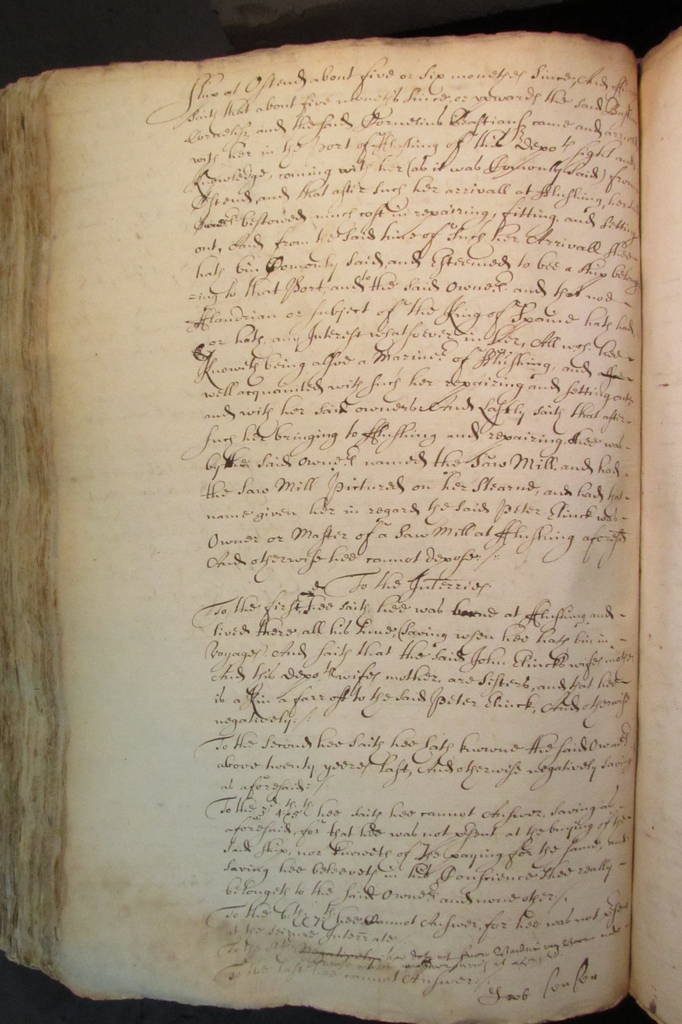 shipp at Ostend about five or six monethes since, And
saith that about five moneths since or upwards the said
Cornelis and the said Cornelius Bastians came and arrived
with her in the port of fflushing of this depo.ts sight and
knowledge, coming with her (as it was Comonly said) from
Ostend, and that after such her arrivall at fflushing, her said
bestowed much cost in repairing, fitting and setting
out, And from the said time of such her Arrivall shee
hath bin Comonly said and esteemed to bee a ship belong
=ing to that Port, and to the said Owners and that noe
fflandrian or subject of the King of Spaine hath had
or hath any Interest whatsoever in her, All wch hee
knoweth being alsoe a Mariner of fflushing, and
well acquainted with such her repairing and setting out
and with her said owners And Lastly saith that after
such her bringing to fflushing and repairing shee was
by the said Owners named the Saw Mill and had
the Saw Mill Pictured on her Stearne, and had that
name given her in regard the said Peter Clinck was
Owner or Master of a Saw Mill at fflushing aforesd
And otherwise hee cannot depose./.
To the Interries
To the first hee saith hee was borne at fflushing and
lived there all his time, (saving when hee hath bin in
voyages) And saith that the said John Clincks wifes mother
And this depo.ts wifes mother are sisters, and that hee
is a Kin a farr off to the said Peter Clinck, And otherwise
negatively./.
To the second hee saith hee hath knowne the said Owners
above twenty yeeres last, And otherwise negatively saving
as aforesaid./
To the 3d 4th 5th hee saith hee cannot Answer, saving as
aforesaid, for that hee was not present at the buying of the
said ship, nor knoweth of the paying for the same, and
saving hee beleeveth in his Conscience shee really
belongeth to the said Owners and none others./.
To the 6th 7th hee Cannot Answer, for hee was not
at the seizure Interrate
To the
To the last hee cannot Answer./